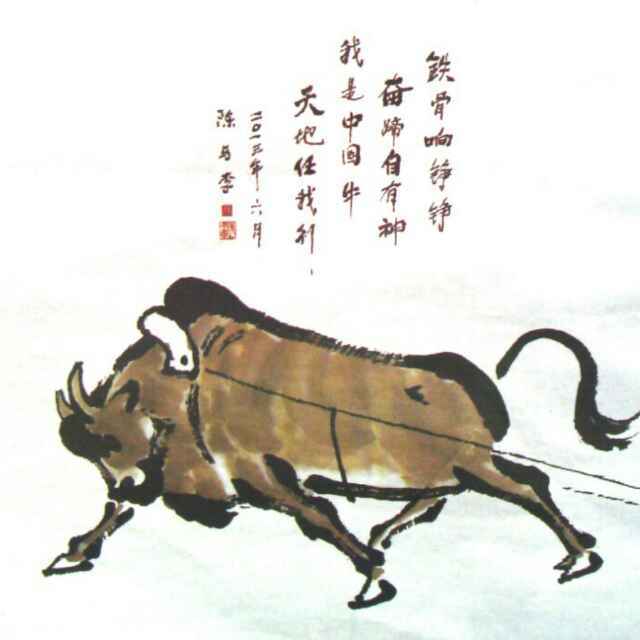 铁骨响铮铮
奋蹄自有神
我是中国牛
天地任我行
二〇一三年六月
陈 李